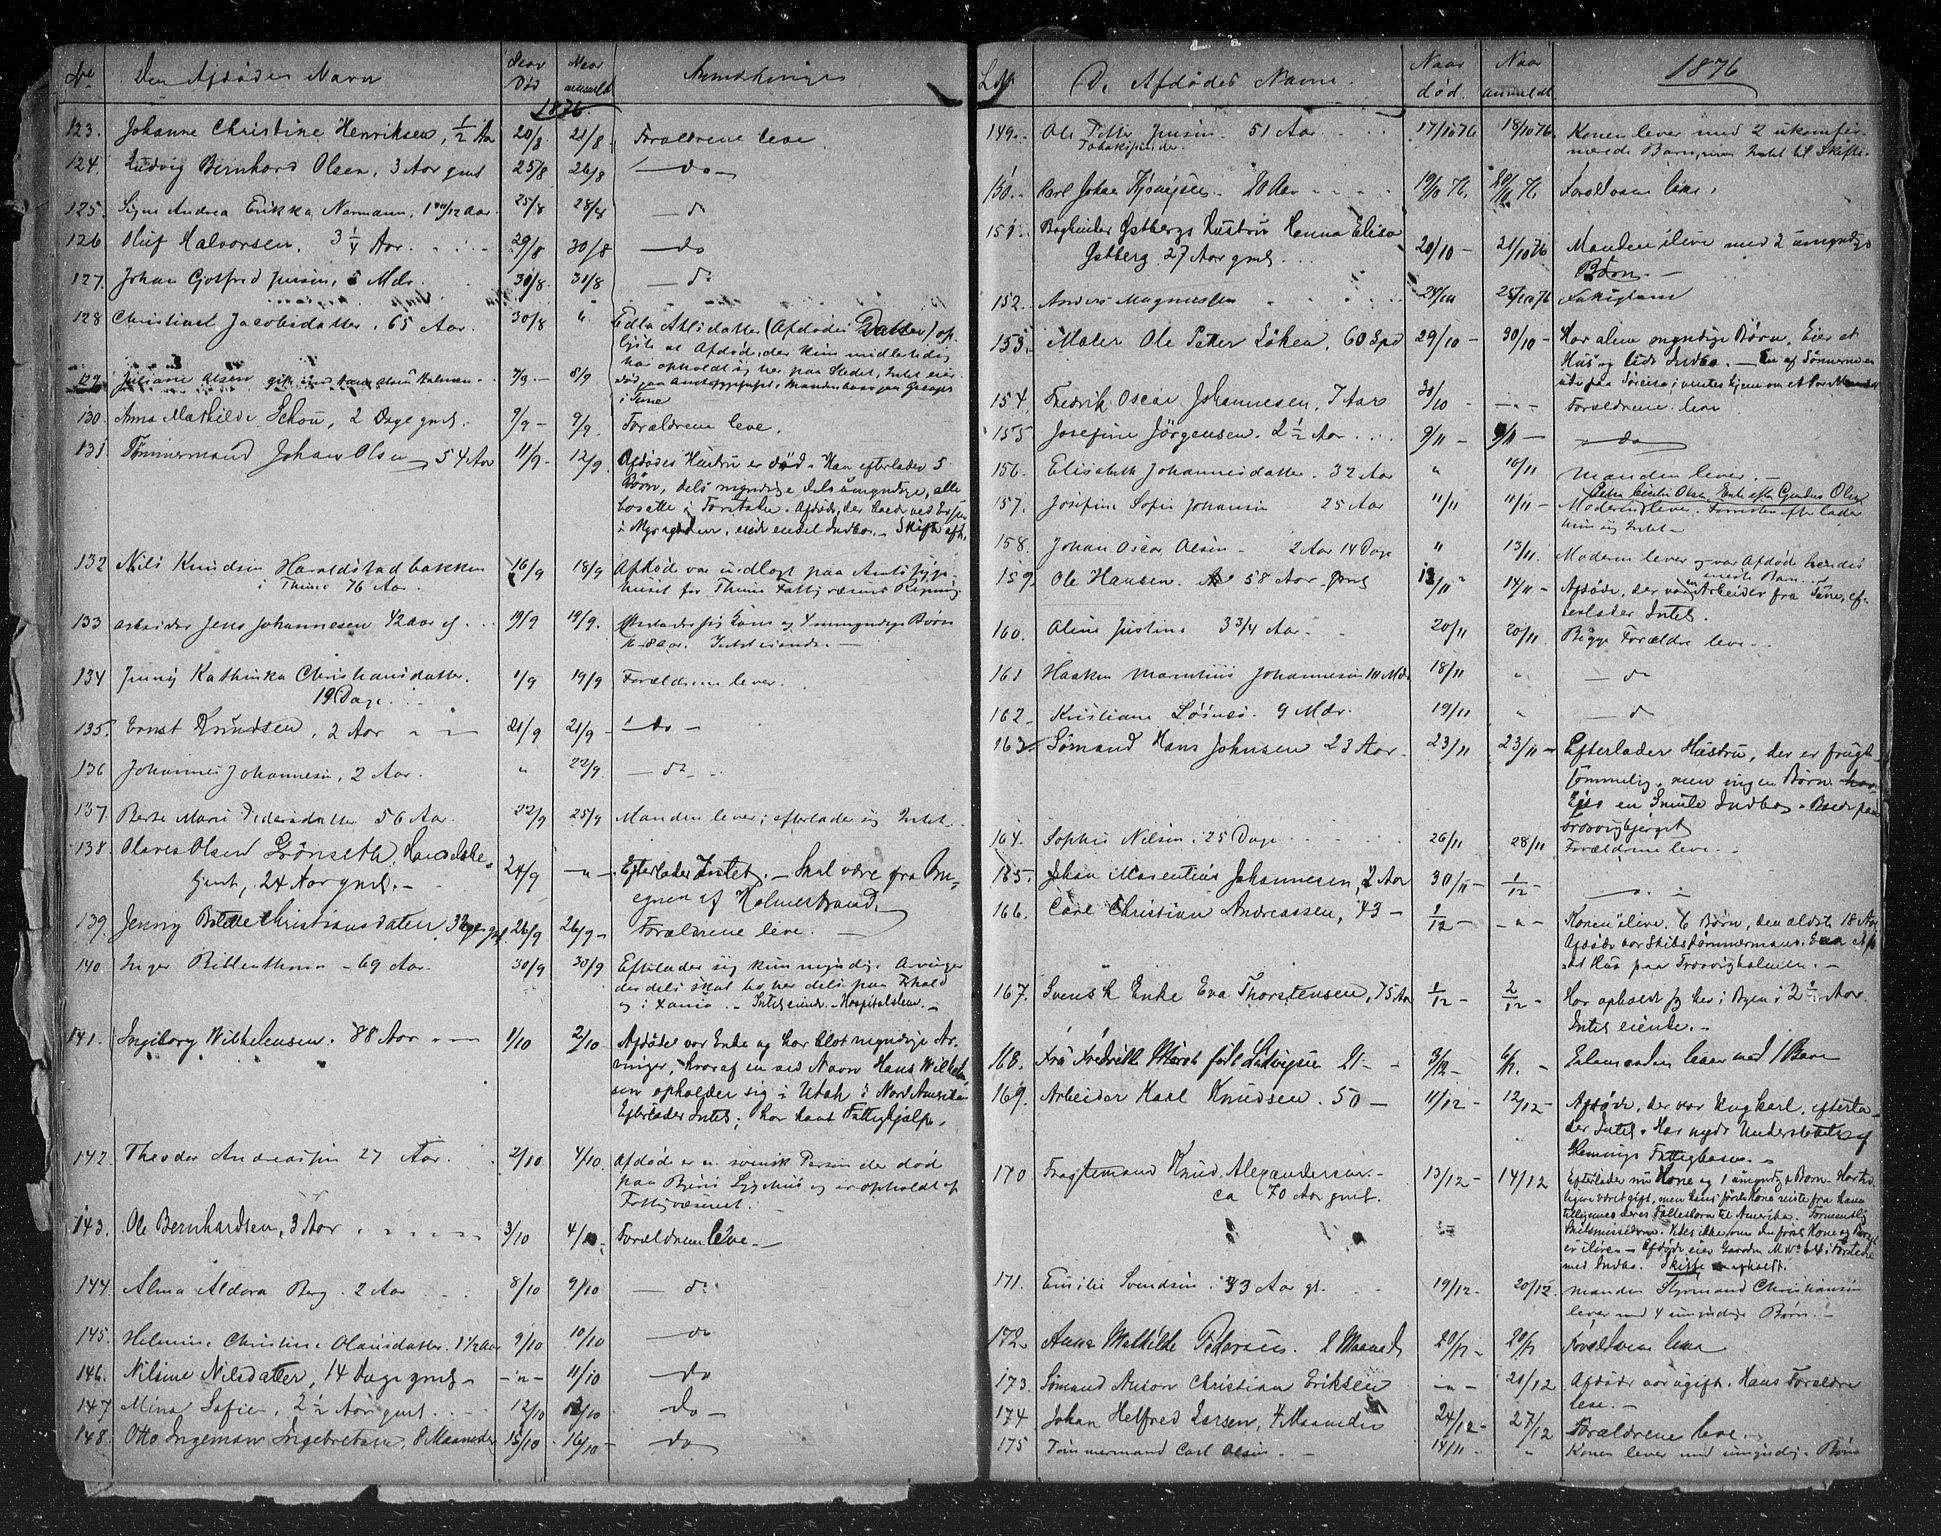 No Den Afdødes Navn Naar Død Naar anmeldt Anmerkninger
1876
123. Johanne Christine Henriksen, 1/2 Aar 20/8 21/8 Forældrene leve
124. Ludvig Bernhard Olsen, 3 Aar gml 25/8 26/8 — do —
125. Signe Andrea Erikka Normann, 1 11/12 Aar. 25/8 28/8 — do
126 Oluf Halvorsen, 3 1/4 Aar. 29/8 30/8 — do
127. Johan Gotfred Jensen, 5 Mdr. 30/8 31/8 — do
128 Christine Jacobsdatter, 65 Aar. 30/8 " Edla Axelsdatter (Afdødes Datter) op-
lyste at Afdøde, der kun midlertidig
har opholdt sig her paa Stedet, Intet eier
129 Juliane Olsen gift med 7/9 — 8/9 død paa Amtssygehuset, Manden
i Tune
130. Anna Mathilde Schou, 2 Dage gml. 9/9 — 9/9. Forældrene leve.
131 Tømmermand Johan Olsen 54 Aar 11/9 — 12/9. Afdødes Hustru er død. Han efterlader 5
Børn, dels myndige dels umyndige, alle
bosatte i Forstaden. Afdøde, der boede ved
i Myragaden, eiede endel Indbo. — Skifte afh.
132 Nils Knudsen Haraldstadbakken 16/9 18/9 Afdøde var indlagt paa Amtssyge-
i Thune 76 Aar. huset for Thune Fattigvæsens Regning
133 Arbeider Jens Johannesen 42 Aar gl. 19/9 19/9. Efterlader sig Kone og 4 umyndige Børn
Intet eiende —
134 Jenny Kathinka Christiansdatter. 1/9 19/9 Forældrene lever.
19 Dage.
135. Ernst Knudsen, 2 Aar 21/9 21/9 — — do —
136 Johannes Johannesen, 2 Aar. " 22/9 — do —
137. Berte Marie Pedersdatter 56 Aar. 22/9 25/9 Manden lever; efterlader sig Intet.
138. Olaves Olsen Grønseth, Handelsbe-
tjent, 24 Aar gml. — 24/9 — " — Efterlader Intet. — Skal være fra Om-
egnen af Holmestrand.
139. Jenny Bolette Christiansdatter, 3 Uger gml. 26/9 26/9 — Forældrene leve. —
140. Inger Billenthomm — 69 Aar. 30/9 30/9 Efterlader sig kun myndige Arvinger
der dels skal bo her dels paa Frhald
og i Xania. — Intet eiende — Hospitalslem. —
141. Ingeborg Wilhelmsen. 88 Aar. 1/10 2/10 Afdøde var Enke og har blot myndige Ar-
vinger, hvoraf en ved Navn Hans Wilhelm-
sen opholder sig i Utah i Nord Amerika
Efterlader Intet; har havt Fattighjælp.
142. Theodor Andreassen 27 Aar. 2/10 4/10. Afdøde er en svensk Person der død
paa Byens Sygehus og er opholdt af
Fattigvæsenet.
143. Ole Bernhardsen, 3 Aar 3/10 4/10 Forældrene leve —
144. Alma Aldora Berg. 2 Aar 8/10 9/10 — do
145. Helmine Christine Olausdatter. 1 1/2 Aar 9/10 10/10 — do
146. Nilsine Nilsdatter, 14 Dage gml. — " — 11/10 do
147 Mina Sofie, 2 1/2 Aar gml. 12/10 12/10 do —
148. Otto Ingeman Ingebretsen, 8 Maaneder 15/10 16/10 — do
L.No De Afdødes Navne. Naar død. Naar anmeldt. 1876
149. Ole Petter Jensen. 51 Aar 17/10 76 18/10 76 Konen lever med 2 ukonfir-
Tobakspinder. merede Børn, men Intet til Skifte.
150. Carl Johan 20 Aar 19/10 76 20/10 76 Forældrene leve.
151. Bagbinder Østbergs Hustru Hanna Elise
Østberg 27 Aar gml. 20/10 — 21/10 76 Manden ilive med 2 umyndige
Børn. —
152. Anders Magnussen 24/10 25/10 76 Fattiglem
153. Maler Ole Petter Løken, 60 29/10 — 30/10 — Har alene myndige Børn, Eier et
Hus og lidt Indbo. — En af Sønnerne er
ude paa Søreise, ventes hjem om et Par Maaneder
154. Fredrik Oscar Johannesen, 7 Aar 30/10 — — " — Forældrene leve
155 Josefine Jörgensen. 2 1/2 Aar 9/11 — 9/11 — — do
156. Elisabeth Johannesdatter. 32 Aar " 10/11 Manden lever. —
157. Josefine Sofie Johansen 25 Aar 11/11 11/11 — Petra Cecilie Olsen, Enke efter Gunder Olsen
Moderen ilive. Forresten efterlader
hun sig Intet —
158. Johan Oscar Olsen — 2 Aar 14 Dage " 13/11. Moderen lever og var Afdød hendes
eneste Barn.
159. Ole Hansen. 58 Aar gml 13/11 14/11 — Afdøde, der var en Arbeider fra Tune, ef-
terlader Intet.
160. Aline Justine 3 3/4 Aar. 20/11 20/11. Begge Forældre leve. —
161 Haaken Marentius Johannesen 10 Mdr 18/11 " — do
162. Kristiane Løsnes. 9 Mdr. 19/11 " — do
163. Sømand Hans Johnsen 23 Aar 23/11 23/11 — Efterlader Hustru, der er frugt-
sommelig, men ingen Børn.
Eier en Smule Indbo. Boede paa
Trosvigbjerget
164. Sophie Nilsen. 25 Dage 26/11 28/11 Forældrene leve. —
165. Johan Marentius Johannesen, 2 Aar 30/11 — 1/12 —
166. Carl Christian Andreassen, 43 — 1/12 — — " — Konen ilive. 6 Børn, den ældste 18 Aar.
Afdøde var Skibstømmermand.
Hus paa Trosvigholmen. —
167. Svensk Enke Eva Thorstensen, 75 Aar 1/12 — 2/12 — Har opholdt sig her i Byen i 2 1/2 Aar.
Intet eiende. —
168. Fru Fredrikke født Ludvigsen 21 — 3/12 — 6/12. Enkemanden lever med 1 Barn
169. Arbeider Karl Knudsen. 50 — 11/12 — 12/12 — Afdøde, der var Ungkarl, efterla-
der Intet. Har nydt Understøttelse af
Glemmings Fattigkasse. —
170 Fragtemand Knud Alexandersen — 13/12 — 14/12 Efterlader nu Kone og 1 umyndigt Barn. Har tid-
ca 70 Aar gml. ligere været gift, men hans første Kone reiste fra ham
tilligemed deres Fællesbørn til Amerika. Formentlig
Skilsmissedom. Vides ikke, om den første Kone og Børn
er ilive — Afdøde eier Gaarden M No 64 i Forstaden
med Indbo. Skifte
171. Emilie Svendsen. 33 Aar gl. 19/12 — 20/12. Manden Styrmand Christiansen
lever med 4 umyndige Børn. —
172. Anna Mathilde Pedersen. 2 Maaned 20/12 — 20/12 Forældrene leve
173. Sømand Anton Christian Eriksen — " — 21/12 Afdøde var ugift. Hans Forældre
leve. —
174 Johan Helfred Larsen, 4 Maaneder 24/12 — 27/12 Forældrene leve.
175 Tømmermand Carl Olsen 18/11 — " Konen lever med umyndige Børn